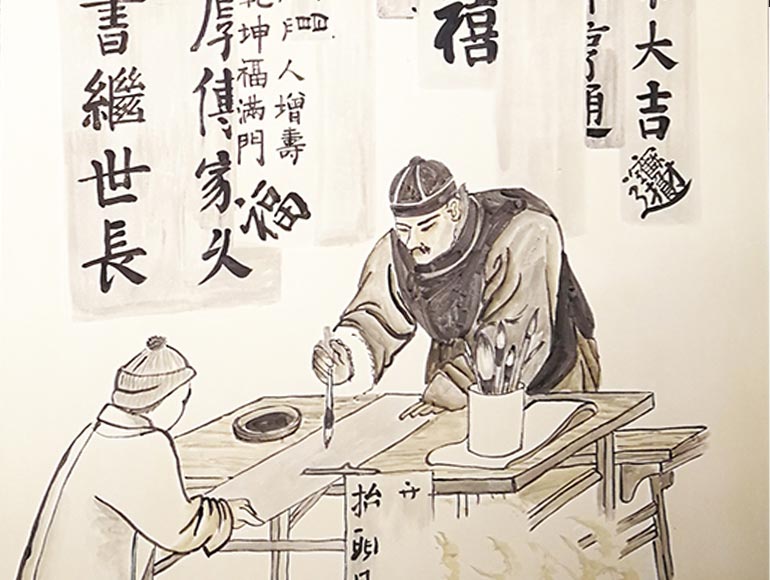 大吉
亨通
禧
人增壽
乾坤福滿門
福
厚傳家久
書繼世長
抬頭見